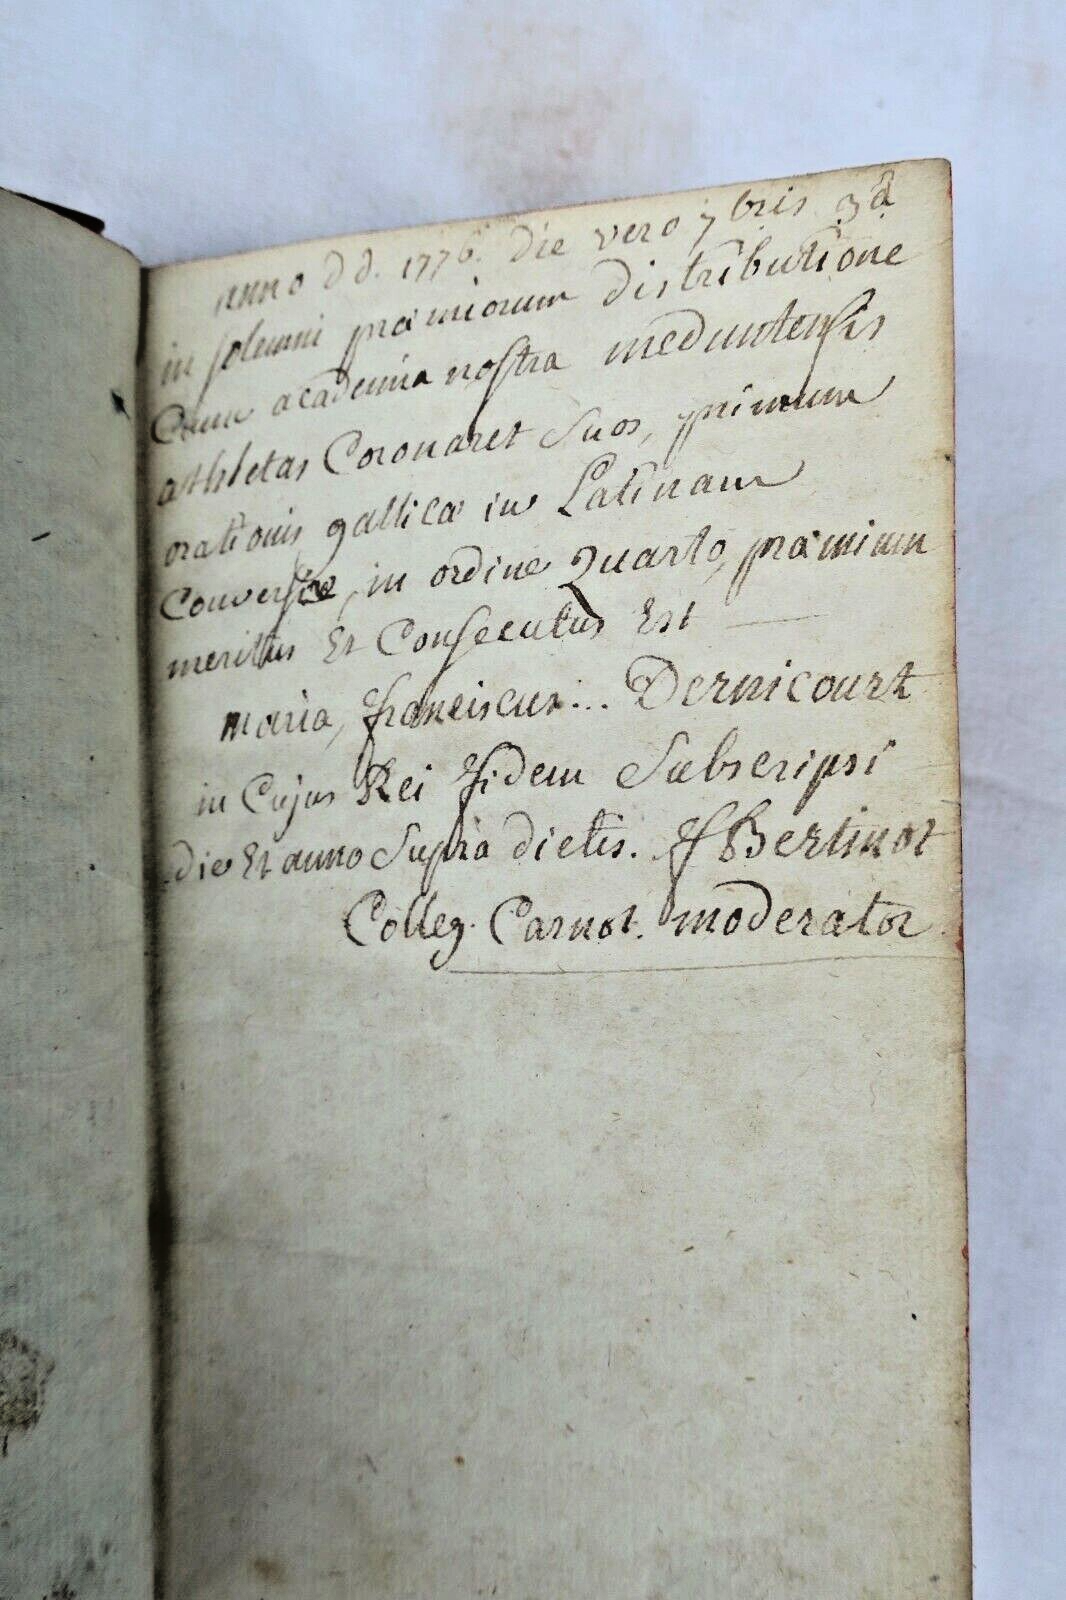 anno d d. 1776. die vero 7bris 3a
in solemni præmiorum distributione
Cum academia nostra meduntensis
athletas Coronaret Suos, primum
orationis gallicæ in Latinam
Conversæ, in ordine Quarto, præmium
meritus Et Consecutus Est
maria, franciscus... Dernicourt
in Cujus Rei fidem Subscripsi
die Et anno Supra dictis. f Bertinot
Colleg. Carnot. moderator